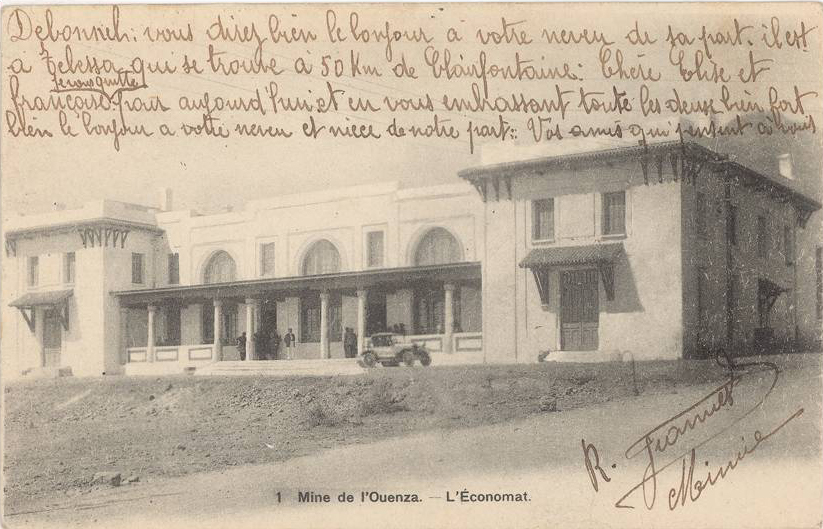 Debonneh: vous direz bien le bonjour à votre neveu de sa part. il est
à Tebessa qui se trouve à 50 Km de Clairfontaine: Chère Elise et
je vous quitte
françois pour aujourd'hui et en vous embrassant toute les deux bien fort
bien le bonjour a votre neveu et niece de notre part:: Vos amis qui pensent à vous
R. Jeannet
Minnie
1 Mine de l'Ouenza. — L'Économat.